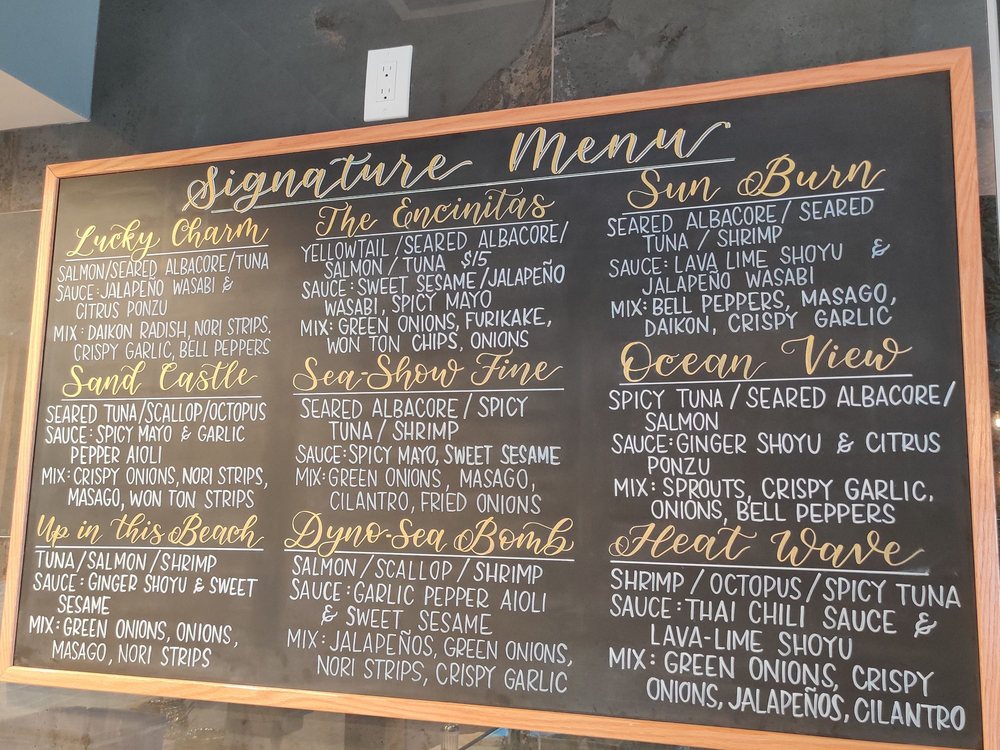 Signature Menu
Lucky Charm
SALMON/SEARED ALBACORE/TUNA
SAUCE: JALAPEÑO WASABI &
CITRUS PONZU
MIX: DAIKON RADISH, NORI STRIPS,
CRISPY GARLIC, BELL PEPPERS
Sand Castle
SEARED TUNA/SCALLOP/OCTOPUS
SAUCE: SPICY MAYO & GARLIC
PEPPER AIOLI
MIX: CRISPY ONIONS, NORI STRIPS,
MASAGO, WON TON STRIPS
Up in this Beach
TUNA/SALMON/SHRIMP
SAUCE: GINGER SHOYU & SWEET
SESAME
MIX: GREEN ONIONS, ONIONS,
MASAGO, NORI STRIPS
The Encinitas
YELLOWTAIL/SEARED ALBACORE/
SALMON/TUNA $15
SAUCE: SWEET SESAME/JALAPEÑO
WASABI, SPICY MAYO
MIX: GREEN ONIONS, FURIKAKE,
WON TON CHIPS, ONIONS
Sea-Show Fine
SEARED ALBACORE/SPICY
TUNA/SHRIMP
SAUCE: SPICY MAYO, SWEET SESAME
MIX: GREEN ONIONS, MASAGO,
CILANTRO, FRIED ONIONS
Dyno-Sea Bomb
SALMON/SCALLOP/SHRIMP
SAUCE: GARLIC PEPPER AIOLI
& SWEET SESAME
MIX: JALAPEÑOS, GREEN ONIONS,
NORI STRIPS, CRISPY GARLIC
Sun Burn
SEARED ALBACORE/SEARED
TUNA/SHRIMP
SAUCE: LAVA LIME SHOYU &
JALAPEÑO WASABI
MIX: BELL PEPPERS, MASAGO,
DAIKON, CRISPY GARLIC
Ocean View
SPICY TUNA/SEARED ALBACORE/
SALMON
SAUCE: GINGER SHOYU & CITRUS
PONZU
MIX: SPROUTS, CRISPY GARLIC,
ONIONS, BELL PEPPERS
Heat Wave
SHRIMP/OCTOPUS/SPICY TUNA
SAUCE: THAI CHILI SAUCE &
LAVA-LIME SHOYU
MIX: GREEN ONIONS, CRISPY
ONIONS, JALAPEÑOS, CILANTRO